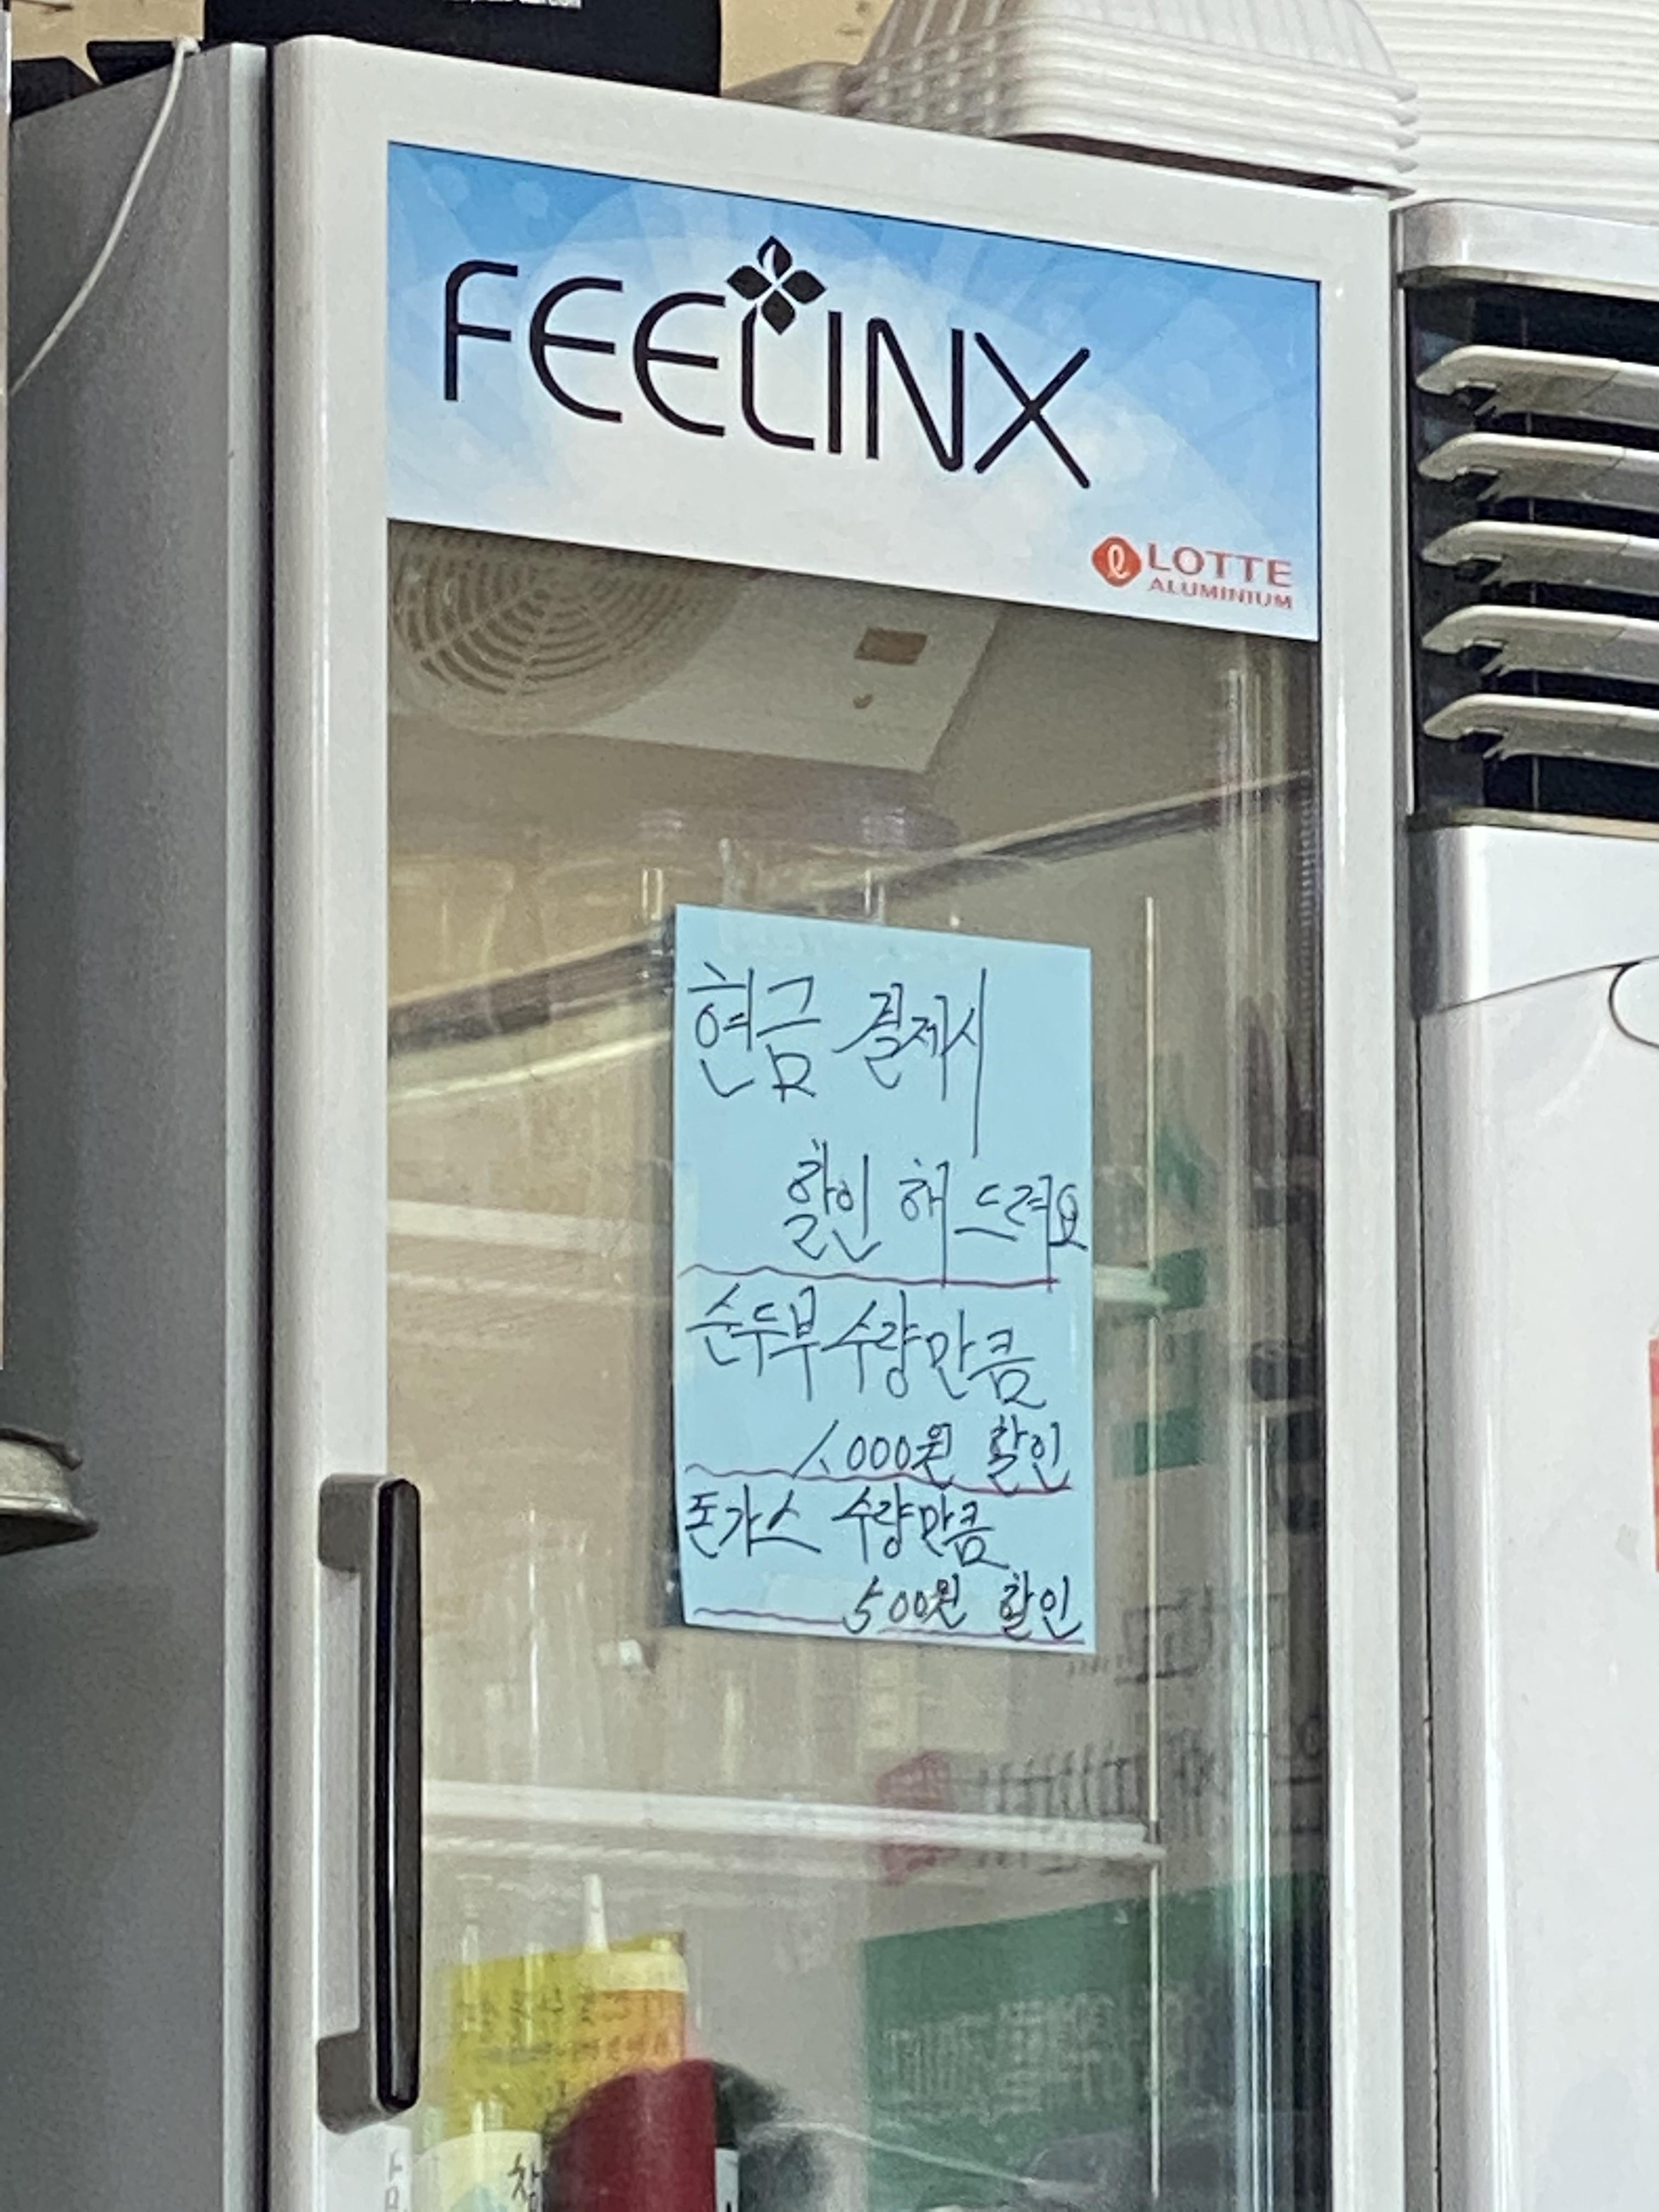 FEELINX
LOTTE
ALUMINIUM
현금 결제시
할인 해드려요
순두부 수량만큼
1.000원 할인
돈가스 수량만큼
500원 할인